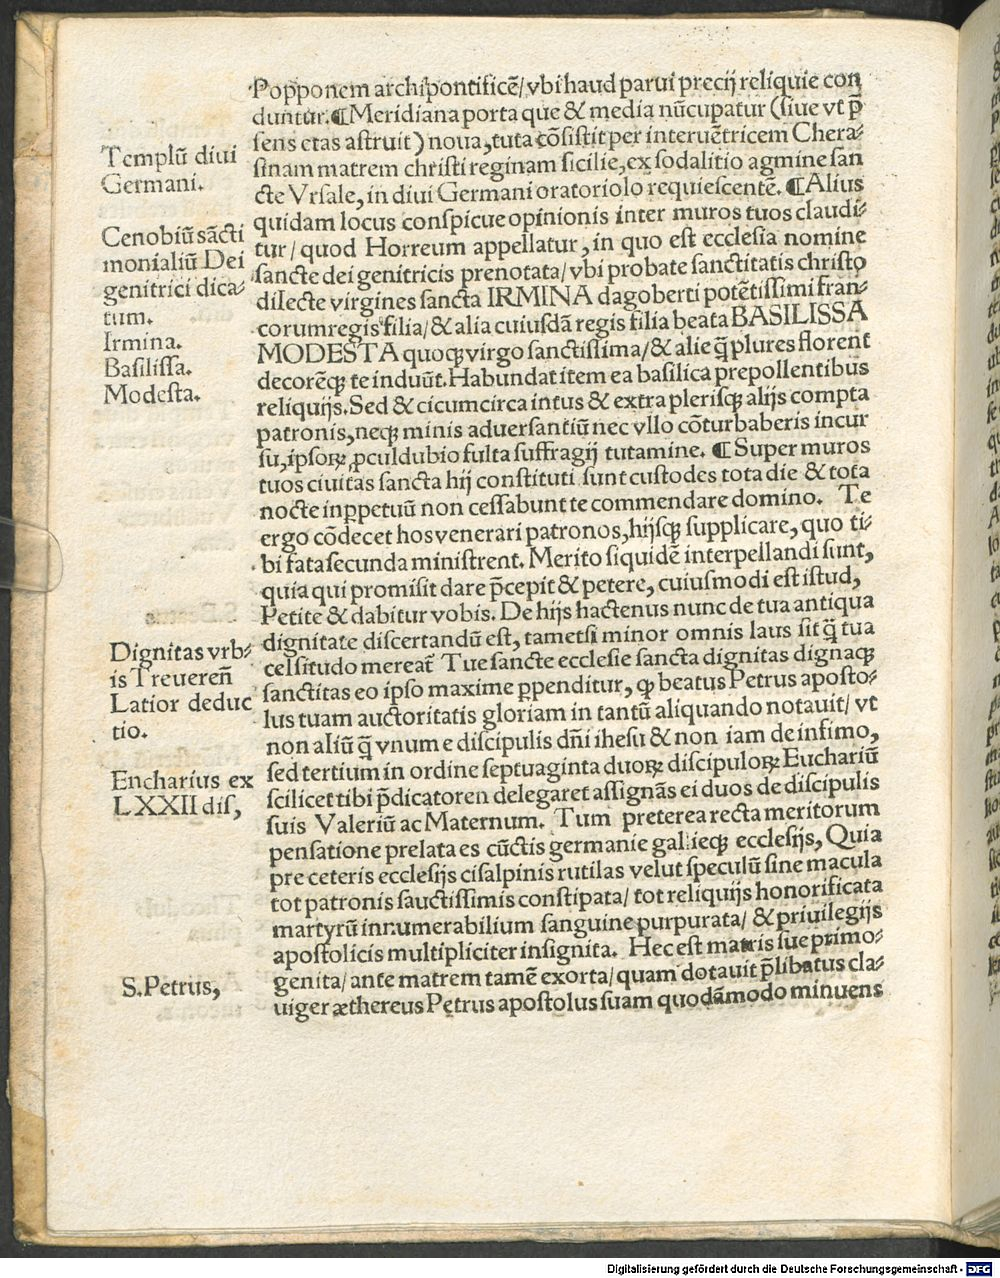 Popponem archipontificē/vbi haud parui precij reliquie con
duntur.¶Meridiana porta que & media nūcupatur (siue vt p̄
sens etas astruit) noua,tuta cōsistit per interuētricem Chera-
sinam matrem christi reginam sicilie,ex sodalitio agmine san
cte Vrsale,in diui Germani oratoriolo requiescentē. ¶Alius
quidam locus conspicue opinionis inter muros tuos claudi-
tur/quod Horreum appellatur,in quo est ecclesia nomine
sancte dei genitricis prenotata/vbi probate sanctitatis christo
dilecte virgines sancta IRMINA dagoberti potētissimi fran-
corum regis filia/& alia cuiusdā regis filia beata BASILISSA
MODESTA quoqꝫ virgo sanctissima/& alie q̄plures florent
decorēqꝫ te induūt. Habundat item ea basilica prepollentibus
reliquijs. Sed & cicumcirca intus & extra plerisqꝫ alijs compta
patronis,neqꝫ minis aduersantiū nec vllo cōturbaberis incur
su,ipsoꝝ ꝓculdubio fulta suffragij tutamine. ¶Super muros
tuos ciuitas sancta hij constituti sunt custodes tota die & tota
nocte inꝑpetuū non cessabunt te commendare domino. Te
ergo cōdecet hos venerari patronos,hijsqꝫ supplicare,quo ti-
bi fata secunda ministrent. Merito siquidē interpellandi sunt,
quia qui promisit dare p̄cepit & petere, cuiusmodi est istud,
Petite & dabitur vobis. De hijs hactenus nunc de tua antiqua
dignitate discertandū est, tametsi minor omnis laus sit q̄ tua
celsitudo mereat᷑ Tue sancte ecclesie sancta dignitas dignaqꝫ
sanctitas eo ipso maxime ꝑpenditur, ꝙ beatus Petrus aposto-
lus tuam auctoritatis gloriam in tantū aliquando notauit/ vt
non aliū q̄ vnum e discipulis dn̄i ihesu & non iam de infimo,
sed tertium in ordine septuaginta duoꝝ discipuloꝝ Euchariū
scilicet tibi p̄dicatoren delegaret assignās ei duos de discipulis
suis Valeriū ac Maternum. Tum preterea recta meritorum
pensatione prelata es cūctis germanie gallieqꝫ ecclesijs, Quia
pre ceteris ecclesijs cisalpinis rutilas velut speculū sine macula
tot patronis sauctissimis constipata/ tot reliquijs honorificata
martyrū innumerabilium sanguine purpurata/ & priuilegijs
apostolicis multipliciter insignita. Hec est matris sue primo-
genita/ ante matrem tamē exorta/ quam dotauit p̄libatus cla-
uiger æthereus Petrus apostolus suam quodāmodo minuens
Templū diui
Germani.
Cenobiū sācti
monialiū Dei
genitrici dica-
tum.
Irmina.
Basilissa.
Modesta.
Dignitas vrb-
is Treuereñ
Latior deduc
tio.
Encharius ex
LXXII dis,
S.Petrus,
Digitalisierung gefördert durch die Deutsche Forschungsgemeinschaft - DFG